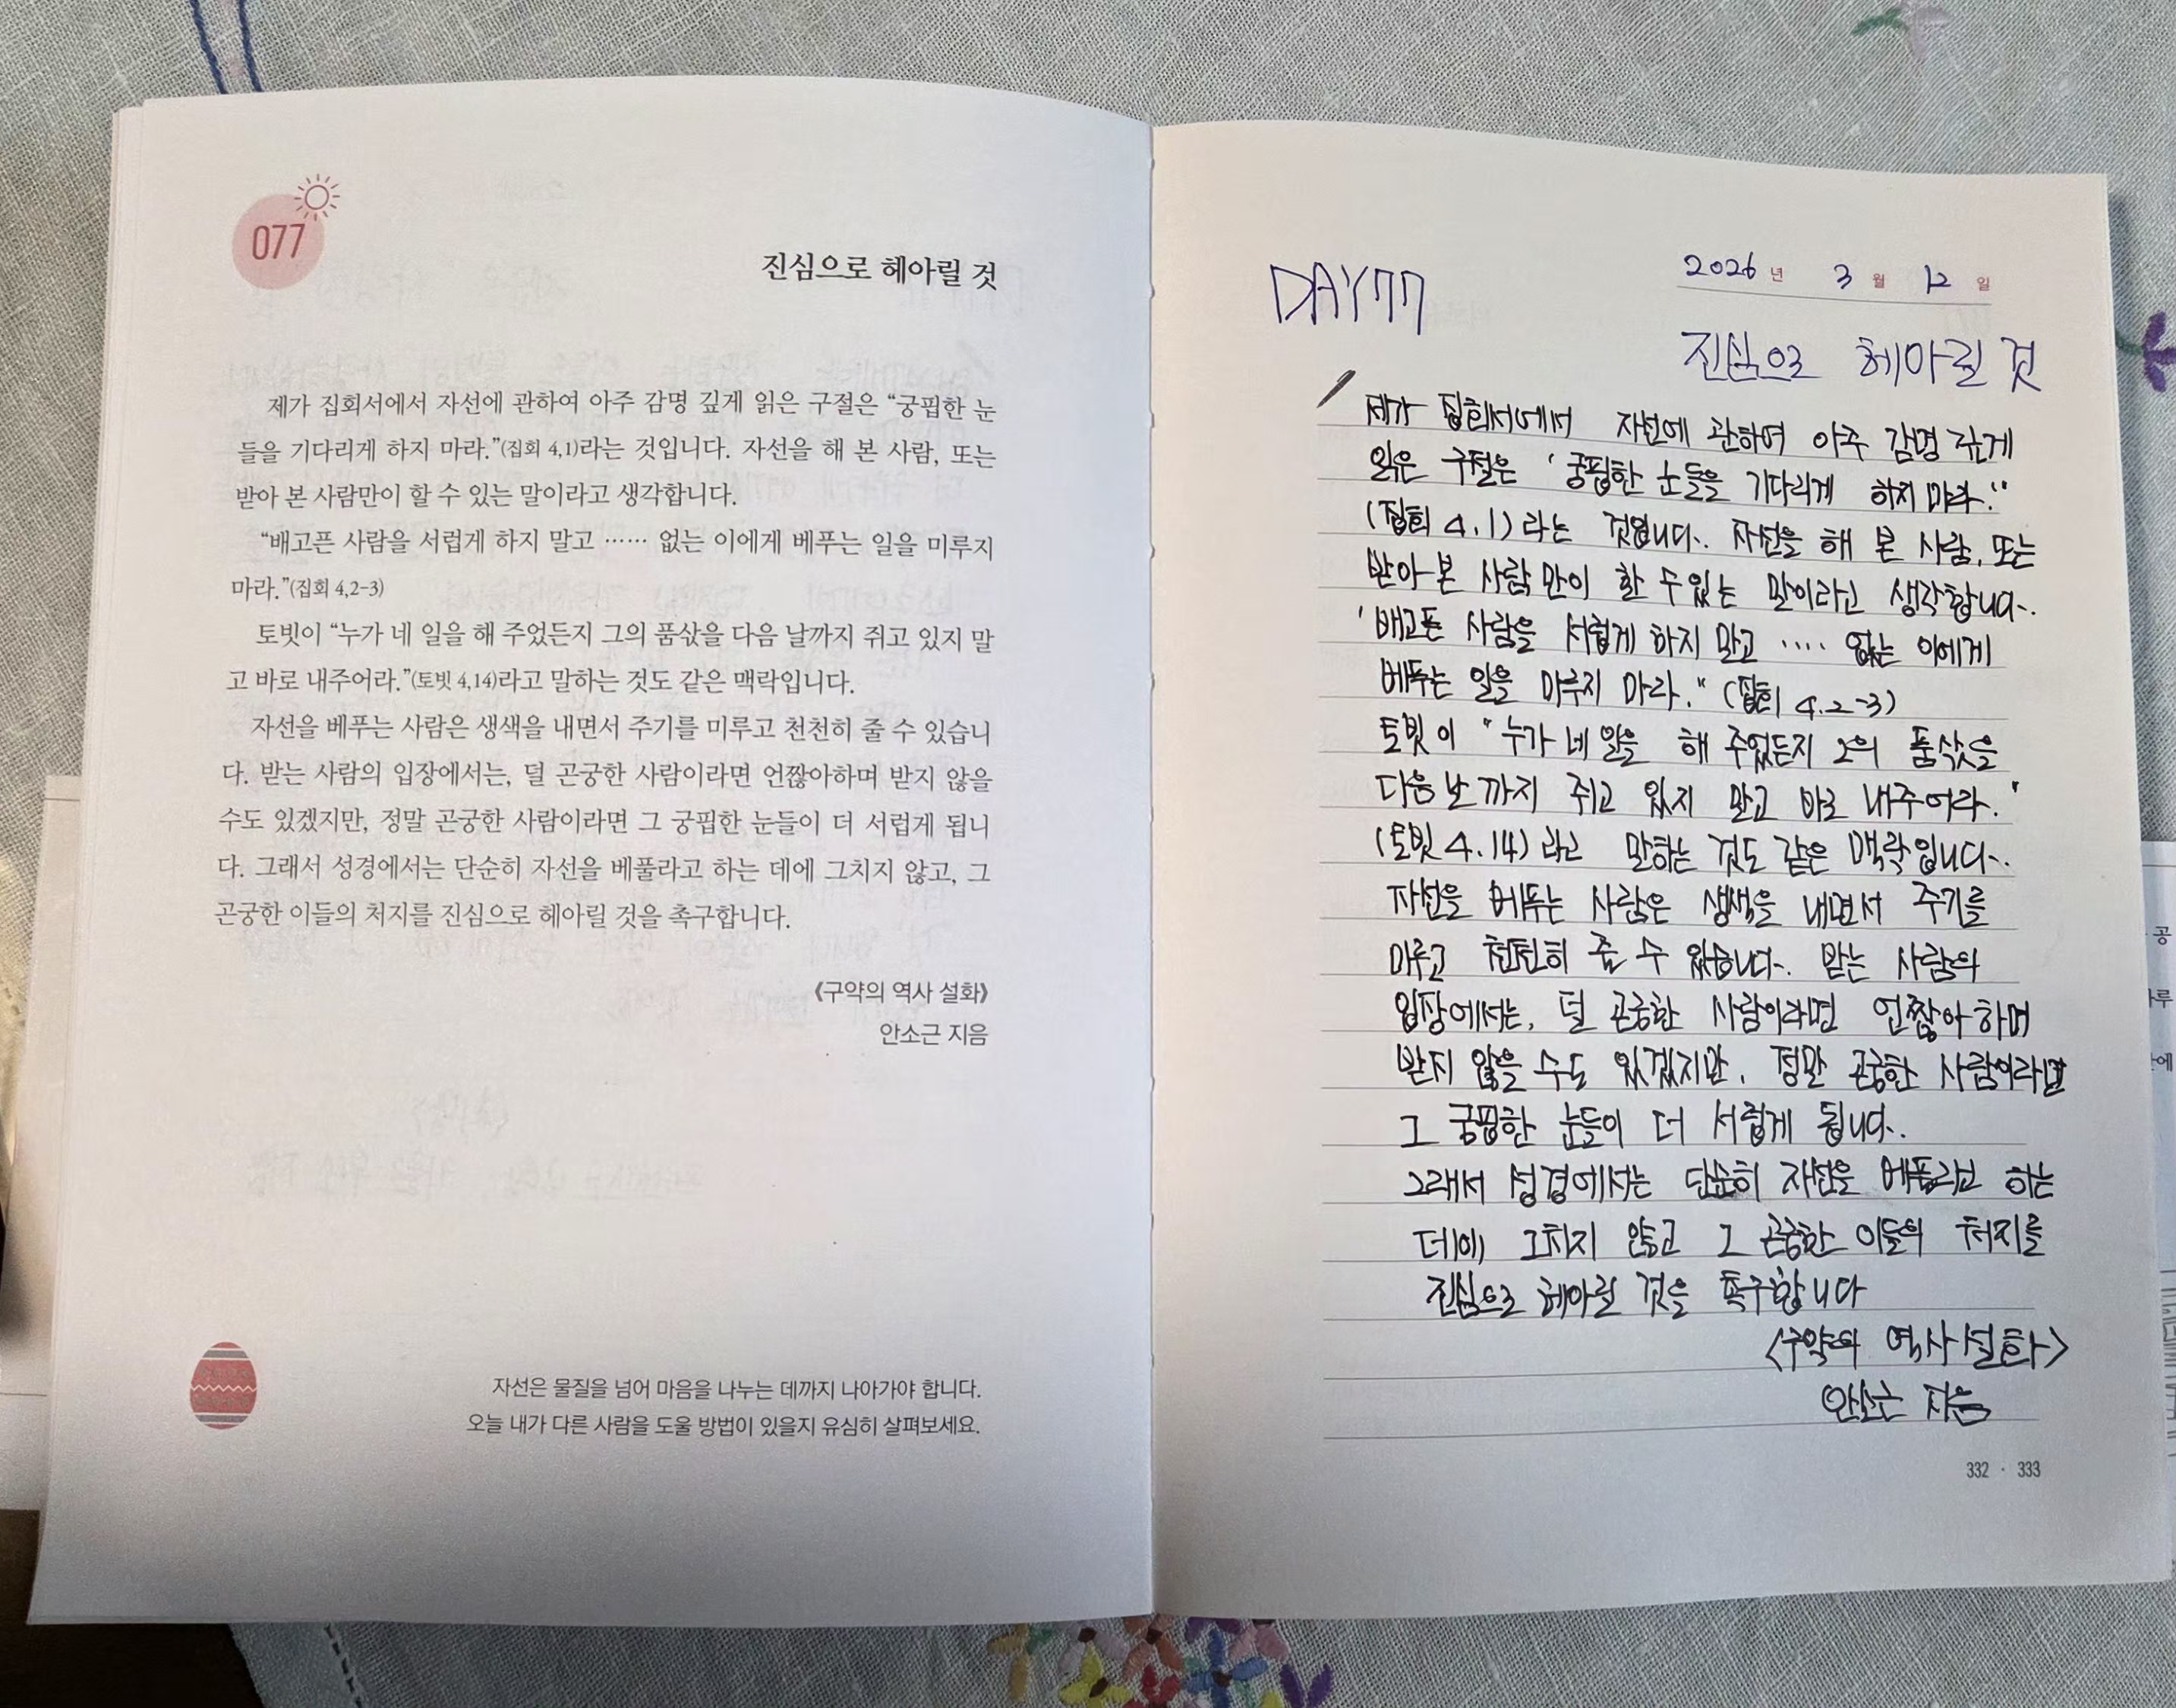 077
진심으로 헤아릴 것
제가 집회서에서 자선에 관하여 아주 감명 깊게 읽은 구절은 “궁핍한 눈
들을 기다리게 하지 마라.”(집회 4,1)라는 것입니다. 자선을 해 본 사람, 또는
받아 본 사람만이 할 수 있는 말이라고 생각합니다.
“배고픈 사람을 서럽게 하지 말고 …… 없는 이에게 베푸는 일을 미루지
마라.”(집회 4,2-3)
토빗이 “누가 네 일을 해 주었든지 그의 품삯을 다음 날까지 쥐고 있지 말
고 바로 내주어라.”(토빗 4,14)라고 말하는 것도 같은 맥락입니다.
자선을 베푸는 사람은 생색을 내면서 주기를 미루고 천천히 줄 수 있습니
다. 받는 사람의 입장에서는, 덜 곤궁한 사람이라면 언짢아하며 받지 않을
수도 있겠지만, 정말 곤궁한 사람이라면 그 궁핍한 눈들이 더 서럽게 됩니
다. 그래서 성경에서는 단순히 자선을 베풀라고 하는 데에 그치지 않고, 그
곤궁한 이들의 처지를 진심으로 헤아릴 것을 촉구합니다.
《구약의 역사 설화》
안소근 지음
자선은 물질을 넘어 마음을 나누는 데까지 나아가야 합니다.
오늘 내가 다른 사람을 도울 방법이 있을지 유심히 살펴보세요.
2026년 3월 12일
DAY77
진심으로 헤아릴 것
제가 집회서에서 자선에 관하여 아주 감명 깊게
읽은 구절은 ‘궁핍한 눈들을 기다리게 하지 마라.”
(집회 4.1)라는 것입니다. 자선을 해 본 사람, 또는
받아 본 사람만이 할 수 있는 말이라고 생각합니다.
‘배고픈 사람을 서럽게 하지 말고 ···· 없는 이에게
베푸는 일을 미루지 마라.” (집회 4.2-3)
토빗이 “누가 네 일을 해 주었든지 그의 품삯을
다음 날까지 쥐고 있지 말고 바로 내주어라.’
(토빗 4.14)라고 말하는 것도 같은 맥락입니다.
자선을 베푸는 사람은 생색을 내면서 주기를
미루고 천천히 줄 수 있습니다. 받는 사람의
입장에서는, 덜 곤궁한 사람이라면 언짢아하며
받지 않을 수도 있겠지만, 정말 곤궁한 사람이라면
그 궁핍한 눈들이 더 서럽게 됩니다.
그래서 성경에서는 단순히 자선을 베풀라고 하는
데에 그치지 않고 그 곤궁한 이들의 처지를
진심으로 헤아릴 것을 촉구합니다
<구약의 역사 설화>
안소근 지음
332 · 333
공
루
에